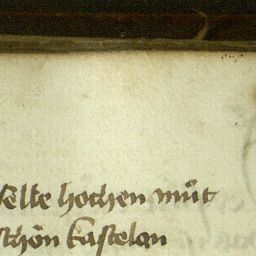 selbe hochen muͦt
schoͤn kastelan